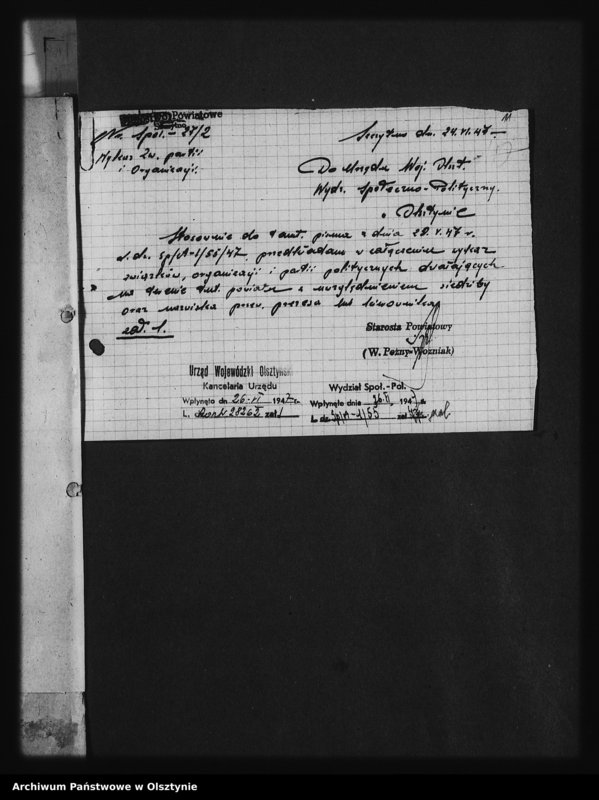 Powiatowe
Nr. Społ.-27/2
Wykaz Zw. partii
i Organizacji.
Szczytno dn. 24.VI.47
Do Urzędu Woj. Olszt.
Wydz. Społeczno-Polityczny.
w Olsztynie
Stosownie do tamt. pisma z dnia 29.V.47 r.
L.dz. Sp/A-1/55/47, przedkładam w załączeniu wykaz
związków, organizacji i partii politycznych działających
na terenie tut. powiatu z uwzględnieniem siedziby
oraz nazwiska przew. prezesa lub kierownika
zał. 1.
Starosta Powiatowy
(W. Późny-Woźniak)
Urząd Wojewódzki Olsztyński
Kancelaria Urzędu
Wpłynęło dn. 26-VI 1947 r.
L. 28262 zał. 1
Wydział Społ.-Pol.
Wpłynęło dnia 26.VI 194 r.
L. dz. Sp/A-1/55 zał.
Archiwum Państwowe w Olsztynie